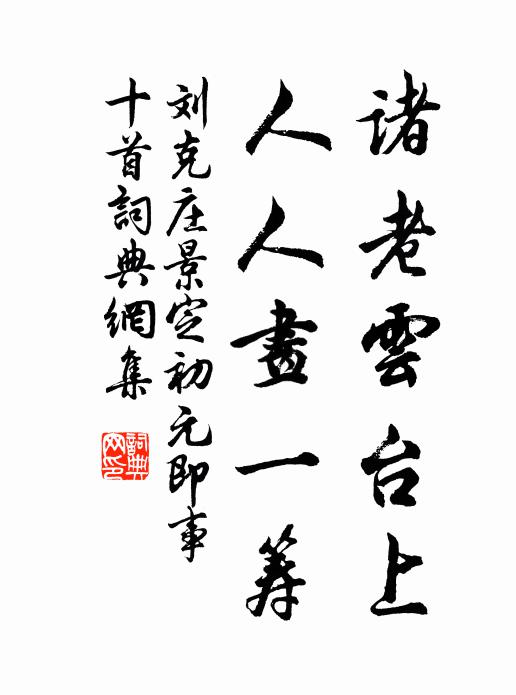 諸老雲台上
人人畫一筹
刘克庄景定初元即事
十首詞典網集
詞典网印